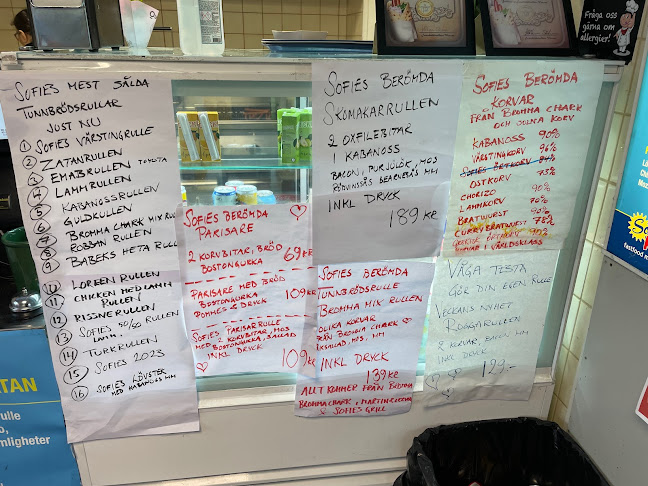 SOFIES MEST SÅLDA
TUNNBRÖDSRULLAR
JUST NU
1 SOFIES VÄRSTINGRULLE
2 ZATANRULLEN
3 EMABRULLEN TOYOTA
4 LAMMRULLEN
5 KABANOSSRULLEN
6 GULDKULLEN
7 BROMMA CHARK MIX RULLE
8 ROBBAN RULLEN
9 BABEKS HETA RULLE
10 LOREEN RULLEN
11 CHICKEN MED LAMM
RULLEN
12 RISSNERULLEN
13 SOFIES 50/60 RULLEN
LAMM
14 TURKRULLEN
15 SOFIES 2023
16 SOFIES
MED KABANOSS MM
SOFIES BERÖMDA
PARISARE
2 KORVBITAR, BRÖD
BOSTONGURKA 69 KR
PARISARE MED BRÖD
BOSTONGURKA 109 KR
POMMES & DRYCK
SOFIES PARISARRULLE
MED 2 KORVBITAR, MOS
BOSTONGURKA, SALLAD
INKL DRYCK 109 KR
SOFIES BERÖMDA
SKOMAKARRULLEN
2 OXFILEBITAR
1 KABANOSS
BACON, PURJOLÖK, MOS
RÖDVINSÅS BEARNERSÅS MM
INKL DRYCK
189 KR
SOFIES BERÖMDA
TUNNBRÖDSRULLE
BROMMA MIX RULLEN
OLIKA KORVAR
FRÅN BROMMA CHARK
SALLAD, MOS, MM
INKL DRYCK
139 KR
ALLT KOMMER FRÅN BROMMA
BROMMACHARK, MARTIN&SERVERA
& SOFIES GRILL
SOFIES BERÖMDA
KORVAR
FRÅN BROMMA CHARK
OCH SOLNA KORV
KABANOSS 90%
VÄRSTINGKORV 96%
SOFIES ÖRTKORV 84%
OSTKORV 75%
CHORIZO 90%
LAMMKORV 70%
BRATWURST 90%
CURRYBRATWURST 78%
90%
KORVAR I VÄRLDSKLASS
VÅGA TESTA
GÖR DIN EGEN RULLE
VECKANS NYHET
ROAGARULLEN
2 KORVAR, BACON MM
INKL DRYCK
129:-
Fråga oss
gärna om
allergier!